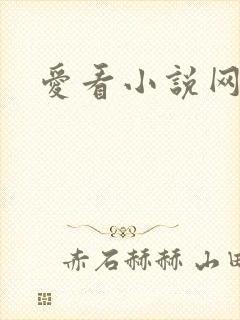 愛看小說网
赤石赫赫 山田